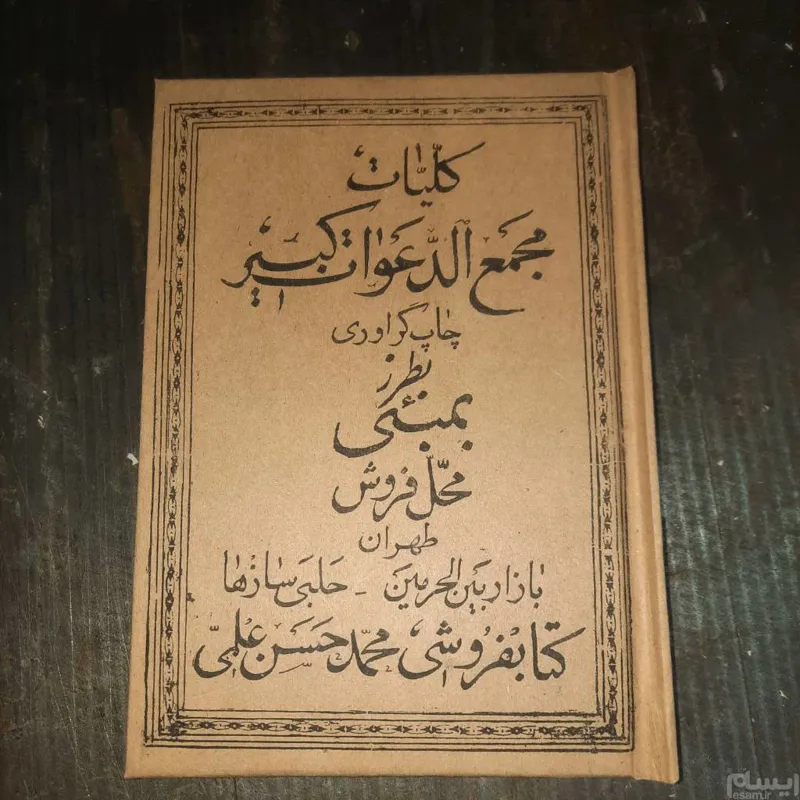 کلیّات
مجمع الدّعوات کبیر
چاپ گراوری
بطرز
بمبئی
محلّ فروش
طهران
بازار بین الحرمین - حلبی سازها
کتابفروشی محمّد حسن علمی
ایسام
esam.ir